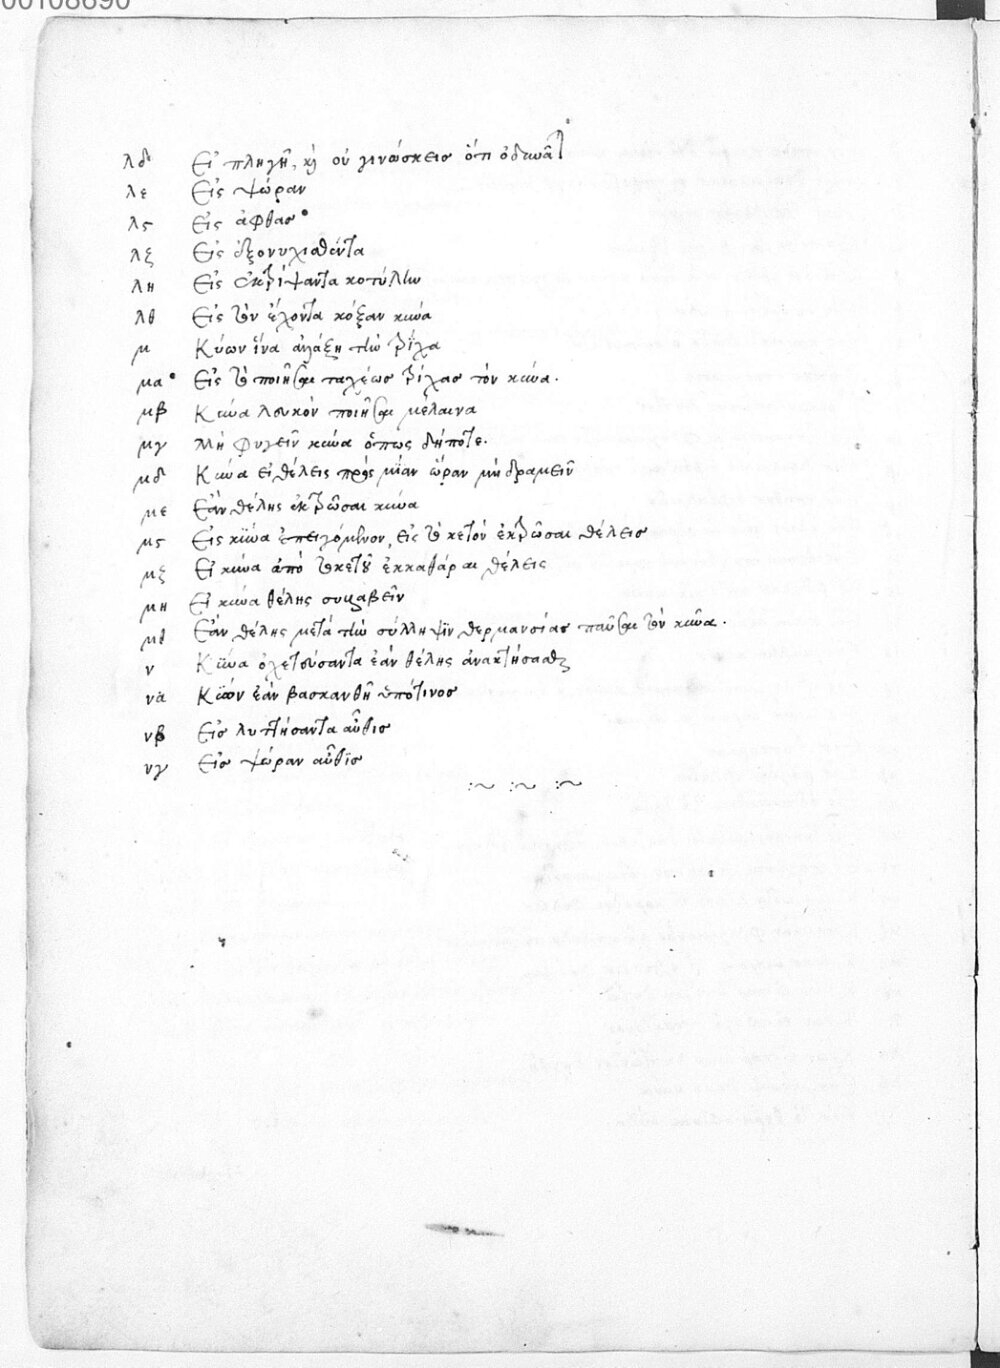 00108690
λδ Εἰ πληγῇ, κỳ οὐ γινώσκεις ὅτι ὀδυνᾶται
λε Εἰς ψώραν
λς Εἰς ἄφθας
λζ Εἰς ὀξονυχιαθέντα
λη Εἰς ἐκτρίψαντα κοτύλην
λθ Εἰς τὸν ἔχοντα κόξαν κύνα
μ Κύων ἵνα ἀλλάξῃ τὴν τρίχα
μα Εἰς τὸ ποιῆσαι ταχέως τρίχας τὸν κύνα.
μβ Κύνα λευκὸν ποιῆσαι μέλαινα
μγ Μὴ φυγεῖν κύνα ὅπως δήποτε.
μδ Κύνα εἰ θέλεις πρὸς μίαν ὥραν μὴ δραμεῖν
με Ἐὰν θέλης ἐκτρῶσαι κύνα
μς Εἰς κύνα ἐπειγόμενον, εἰς τὸ κετὸν ἐκτρῶσαι θέλεις
μζ Εἰ κύνα ἀπὸ τοῦ κετοῦ ἐκκαθάραι θέλεις
μη Εἰ κύνα θέλης συλλαβεῖν
μθ Ἐὰν θέλης μετὰ τὴν σύλληψιν θερμανσίας παῦσαι τὸν κύνα.
ν Κύνα ὀχετεύσαντα ἐὰν θέλης ἀνακτήσασθαι
να Κύων ἐὰν βασκανθῇ ὑπό τινος
νβ Εἰς λυττήσαντα αὖθις
νγ Εἰς ψώραν αὖθις